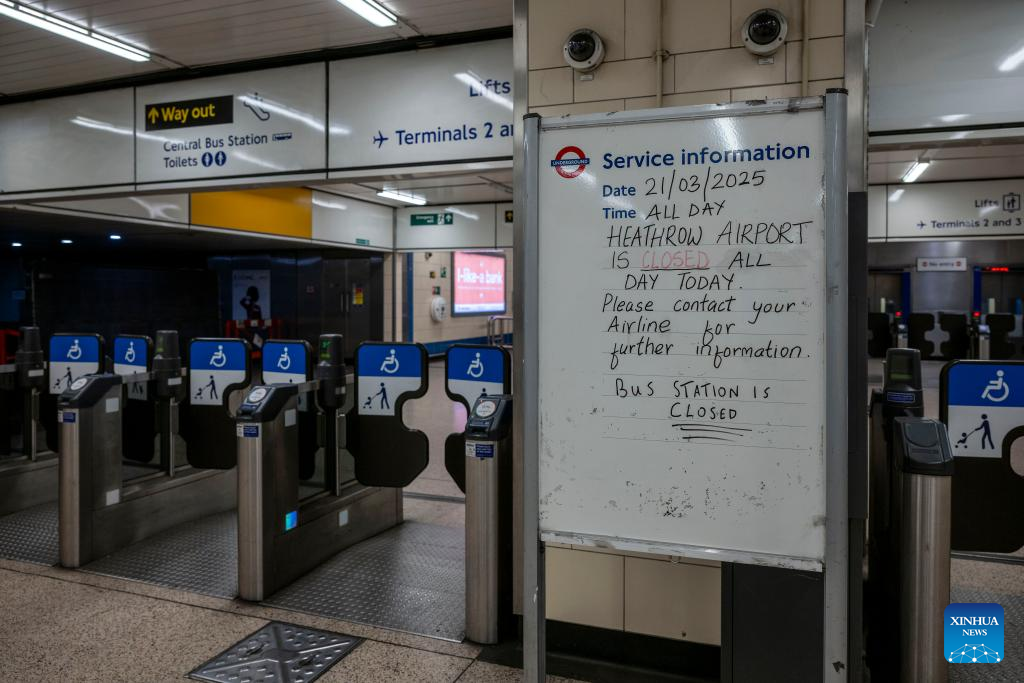 Way out
Central Bus Station
Toilets
Lifts
Terminals 2 a
I-like-a bank
UNDERGROUND
Service information
Date 21/03/2025
Time ALL DAY
HEATHROW AIRPORT
IS CLOSED ALL
DAY TODAY.
Please contact your
Airline for
further information.
BUS STATION IS
CLOSED
Lifts
Terminals 2 and 3
No entry
XINHUA
NEWS